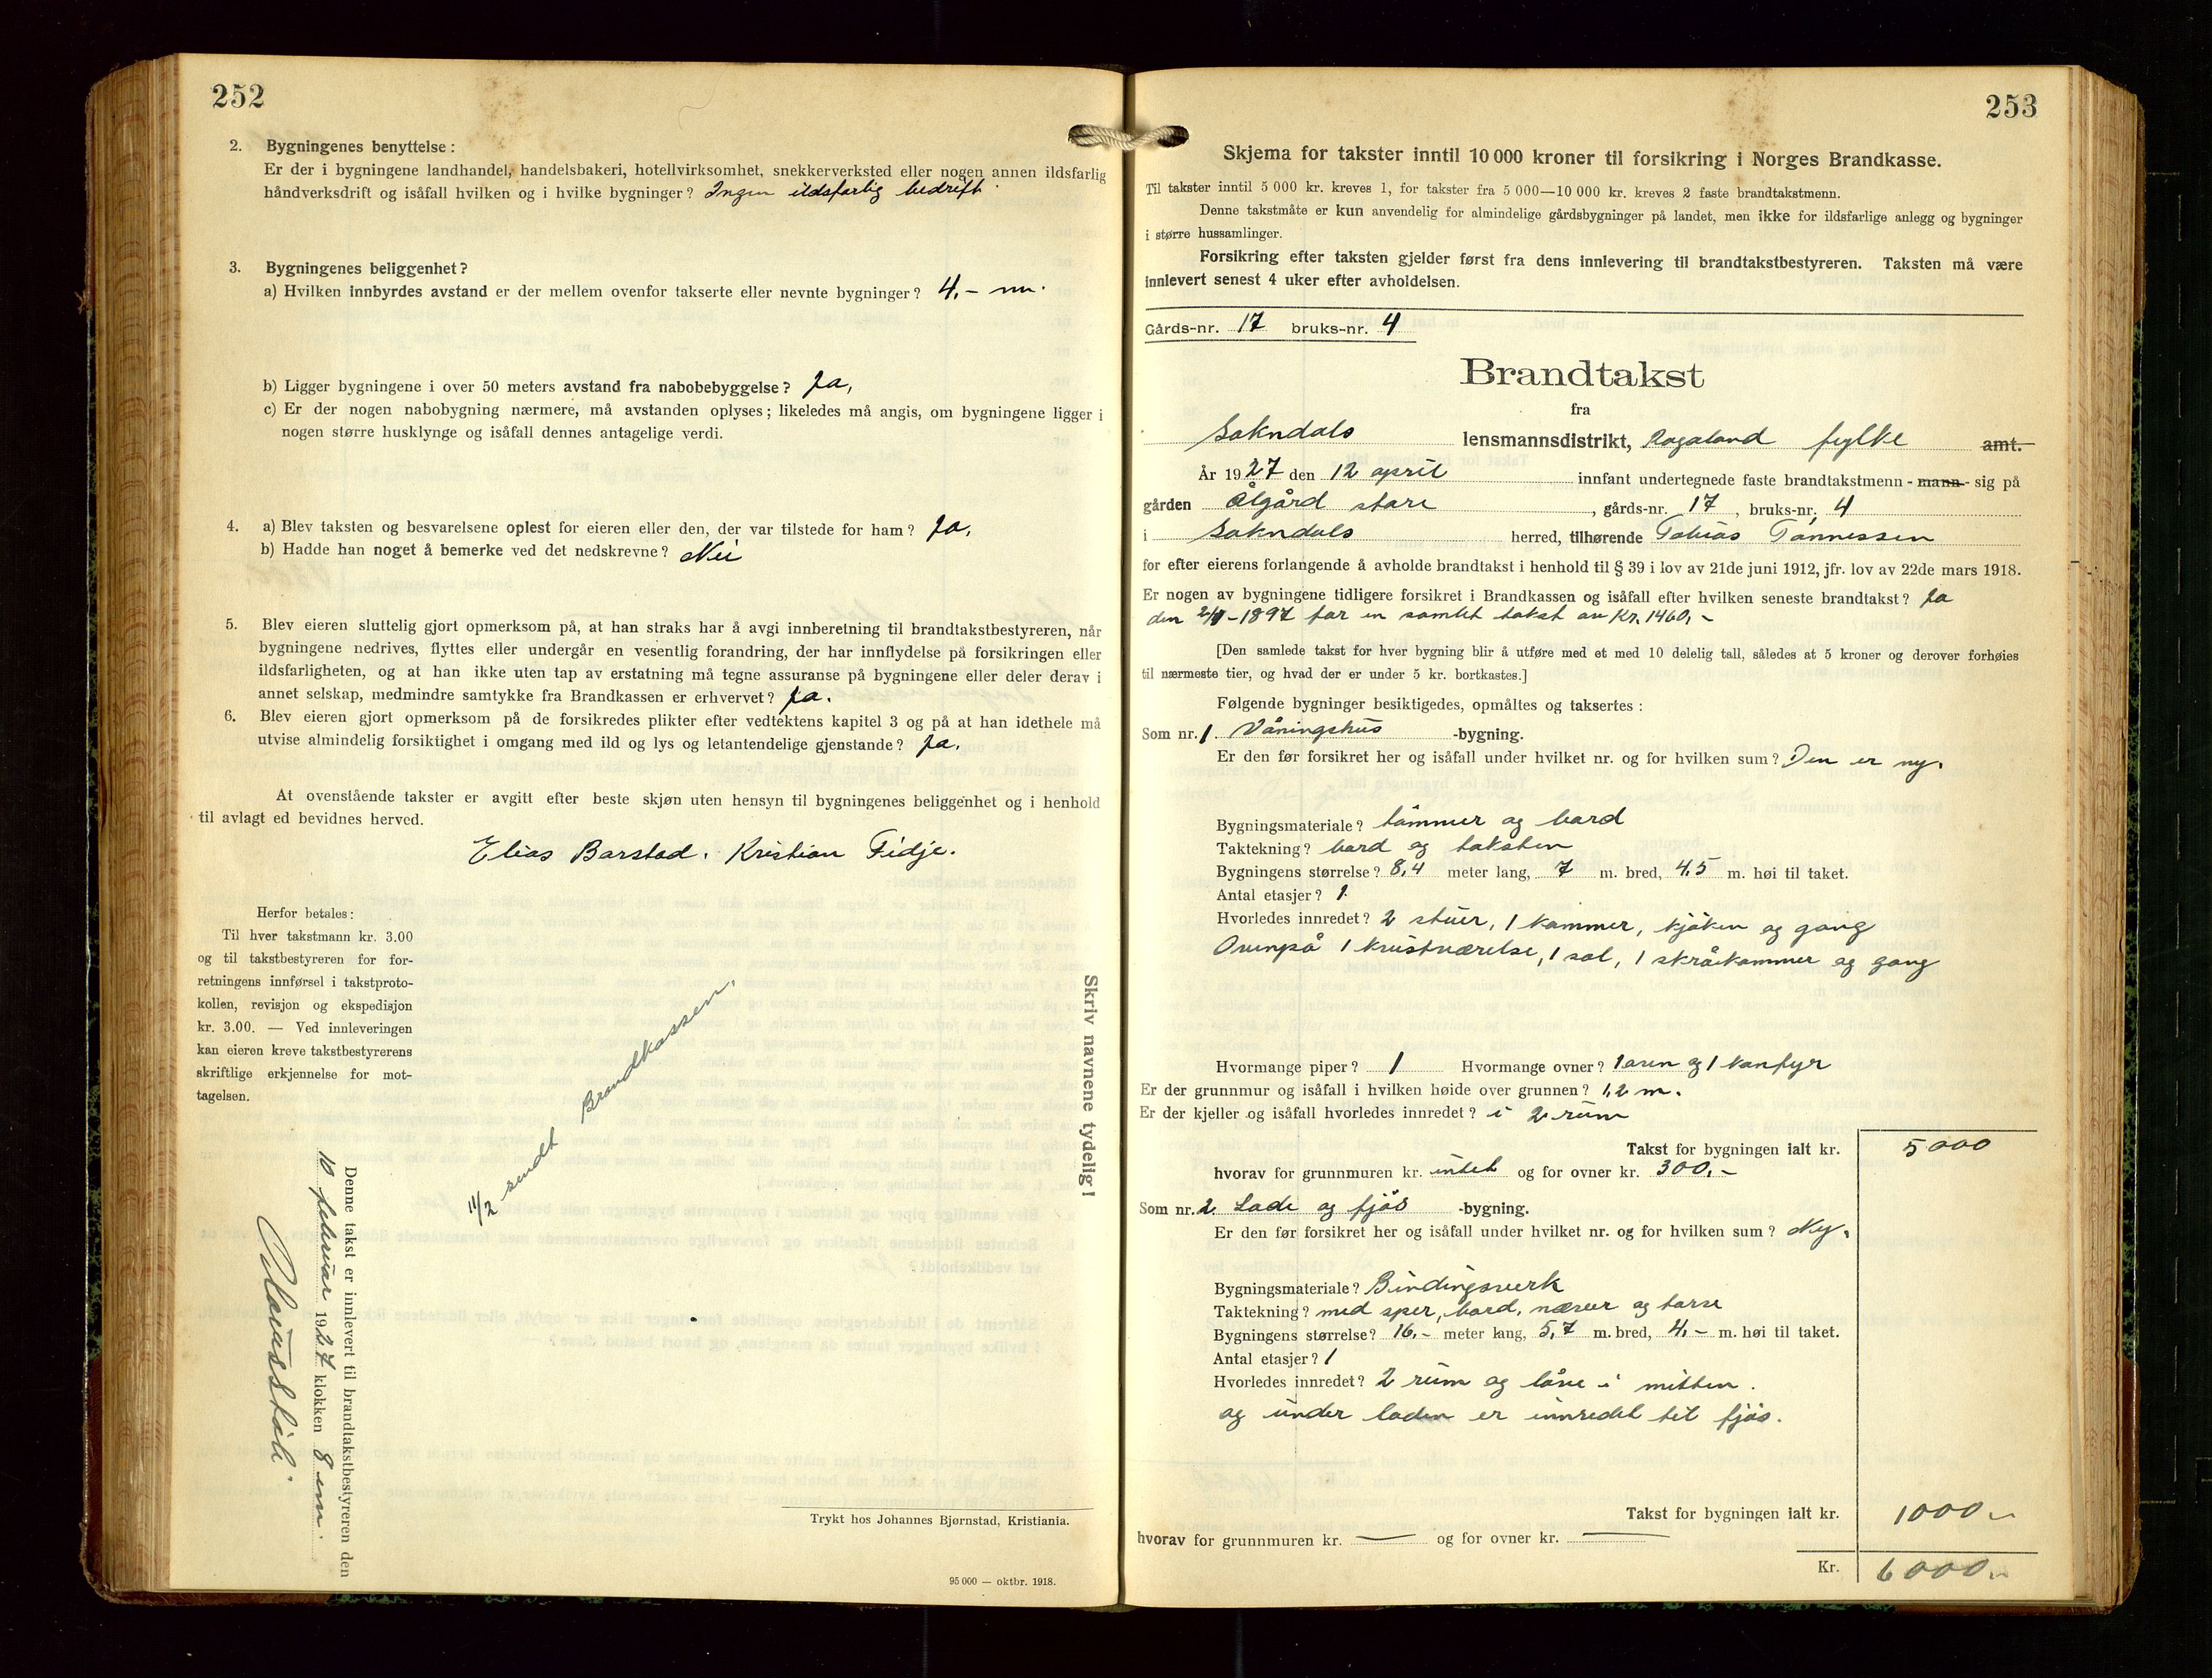 252
2. Bygningenes benyttelse :
Er der i bygningene landhandel, handelsbakeri, hotellvirksomhet, snekkerverksted eller nogen annen ildsfarlig
håndverksdrift og isåfall hvilken og i hvilke bygninger? Ingen ildsfarlig bedrift.
3. Bygningenes beliggenhet?
a) Hvilken innbyrdes avstand er der mellem ovenfor takserte eller nevnte bygninger? 4,- m.
b) Ligger bygningene i over 50 meters avstand fra nabobebyggelse? Ja,
c) Er der nogen nabobygning nærmere, må avstanden oplyses; likeledes må angis, om bygningene ligger i
nogen større husklynge og isåfall dennes antagelige verdi.
4. a) Blev taksten og besvarelsene oplest for eieren eller den, der var tilstede for ham? Ja,
b) Hadde han noget å bemerke ved det nedskrevne? Nei
5. Blev eieren sluttelig gjort opmerksom på, at han straks har å avgi innberetning til brandtakstbestyreren, når
bygningene nedrives, flyttes eller undergår en vesentlig forandring, der har innflydelse på forsikringen eller
ildsfarligheten, og at han ikke uten tap av erstatning må tegne assuranse på bygningene eller deler derav i
annet selskap, medmindre samtykke fra Brandkassen er erhvervet? Ja.
6. Blev eieren gjort opmerksom på de forsikredes plikter efter vedtektens kapitel 3 og på at han idethele må
utvise almindelig forsiktighet i omgang med ild og lys og letantendelige gjenstande? Ja.
At ovenstående takster er avgitt efter beste skjøn uten hensyn til bygningenes beliggenhet og i henhold
til avlagt ed bevidnes herved.
Elias Barstad. Kristian Fidje.
Herfor betales:
Til hver takstmann kr. 3.00
og til takstbestyreren for for-
retningens innførsel i takstproto-
kollen, revisjon og ekspedisjon
kr. 3.00. — Ved innleveringen
kan eieren kreve takstbestyrerens
skriftlige erkjennelse for mot-
tagelsen.
11/2 sendt Brandkassen,
Skriv navnene tydelig!
Denne takst er innlevert til brandtakstbestyreren den
10 februar 1927 klokken 8 em.
Trykt hos Johannes Bjørnstad, Kristiania.
95 000 — oktbr. 1918.
253
Skjema for takster inntil 10 000 kroner til forsikring i Norges Brandkasse.
Til takster inntil 5 000 kr. kreves 1, for takster fra 5 000—10 000 kr. kreves 2 faste brandtakstmenn.
Denne takstmåte er kun anvendelig for almindelige gårdsbygninger på landet, men ikke for ildsfarlige anlegg og bygninger
i større hussamlinger.
Forsikring efter taksten gjelder først fra dens innlevering til brandtakstbestyreren. Taksten må være
innlevert senest 4 uker efter avholdelsen.
Gårds-nr. 17 bruks-nr. 4
Brandtakst
fra
Sokndals lensmannsdistrikt, Rogaland fylke amt.
År 1927 den 12 april innfant undertegnede faste brandtakstmenn - mann - sig på
gården Ålgård store, gårds-nr. 17, bruks-nr. 4
i Sokndals herred, tilhørende Tobias Tønnessen
for efter eierens forlangende å avholde brandtakst i henhold til § 39 i lov av 21de juni 1912, jfr. lov av 22de mars 1918.
Er nogen av bygningene tidligere forsikret i Brandkassen og isåfall efter hvilken seneste brandtakst? Ja
den -1897 for en samlet takst av Kr. 1460,-
[Den samlede takst for hver bygning blir å utføre med et med 10 delelig tall, således at 5 kroner og derover forhøies
til nærmeste tier, og hvad der er under 5 kr. bortkastes.]
Følgende bygninger besiktigedes, opmåltes og taksertes :
Som nr. 1 Våningshus -bygning.
Er den før forsikret her og isåfall under hvilket nr. og for hvilken sum? Den er ny.
Bygningsmateriale? tømmer og bord
Taktekning? bord og taksten
Bygningens størrelse? 8,4 meter lang, 7 m. bred, 4,5 m. høi til taket.
Antal etasjer? 1
Hvorledes innredet? 2 stuer, 1 kammer, kjøken og gang
Ovenpå 1 kvistværelse, 1 sal, 1 skråkammer og gang
Hvormange piper? 1 Hvormange ovner? 1 oven og 1 komfyr
Er der grunnmur og isåfall i hvilken høide over grunnen? 1,2 m.
Er der kjeller og isåfall hvorledes innredet? i 2 rum
Takst for bygningen ialt kr. 5000
hvorav for grunnmuren kr. intet og for ovner kr. 300,-
Som nr. 2 Lade og fjøs -bygning.
Er den før forsikret her og isåfall under hvilket nr. og for hvilken sum? Ny.
Bygningsmateriale? Bindingsverk
Taktekning? med sper, bord, næver og torve
Bygningens størrelse? 16,- meter lang, 5,7 m. bred, 4,- m. høi til taket.
Antal etasjer? 1
Hvorledes innredet? 2 rum og låve i mitten.
og under laden er innredet til fjøs.
Takst for bygningen ialt kr. 1000,-
hvorav for grunnmuren kr. — og for ovner kr. —
Kr. 6000,-